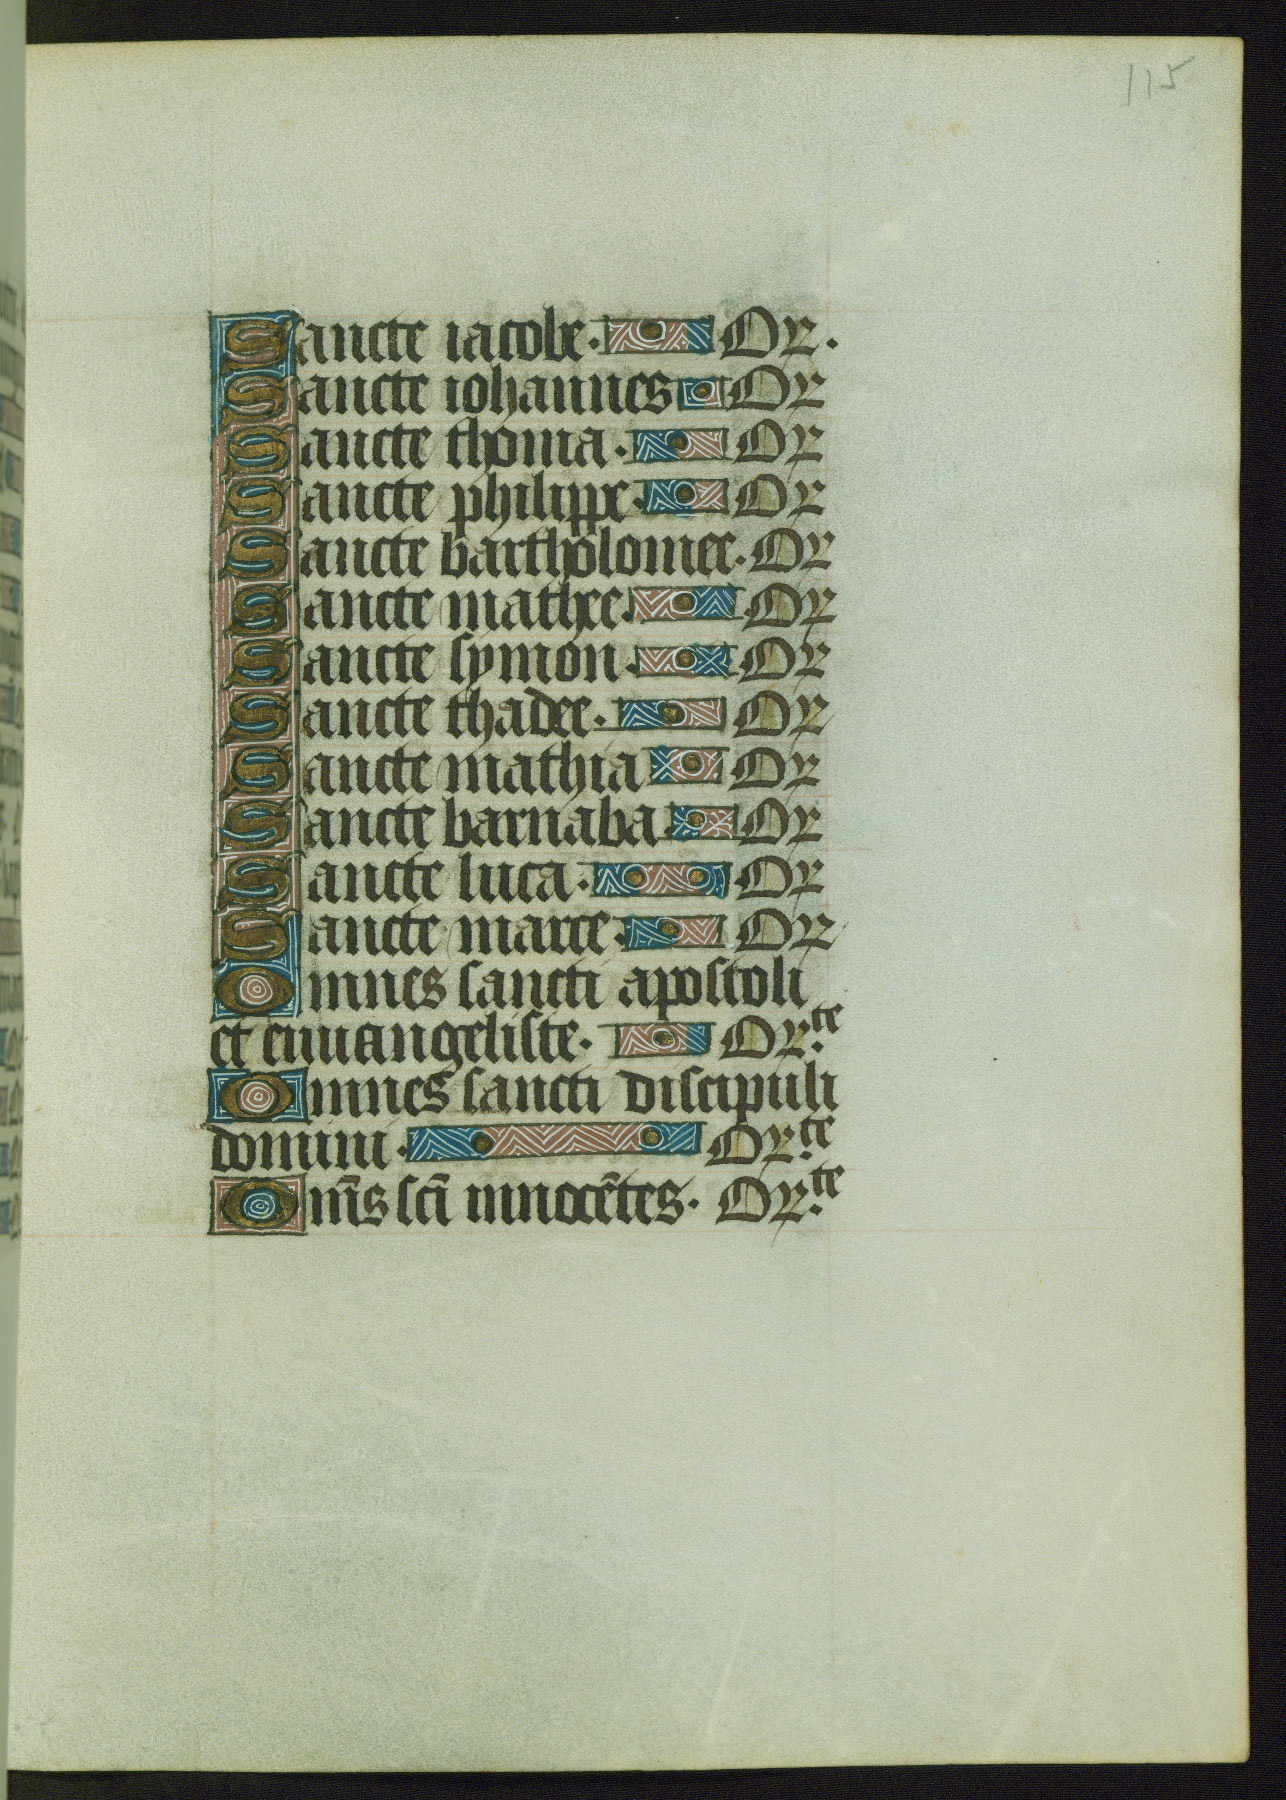 115
Sancte iacobe. Or.
Sancte iohannes Or
Sancte thoma. Or
Sancte philippe. Or
Sancte bartholomee. Or
Sancte mathee. Or
Sancte symon. Or
Sancte thadee. Or
Sancte mathia Or
Sancte barnaba. Or
Sancte luca. Or
Sancte marce. Or
Omnes sancti apostoli
et euuangeliste. Or.te
Omnes sancti discipuli
domini. Or.te
Om̄s sc̄i innocētes. Or.te